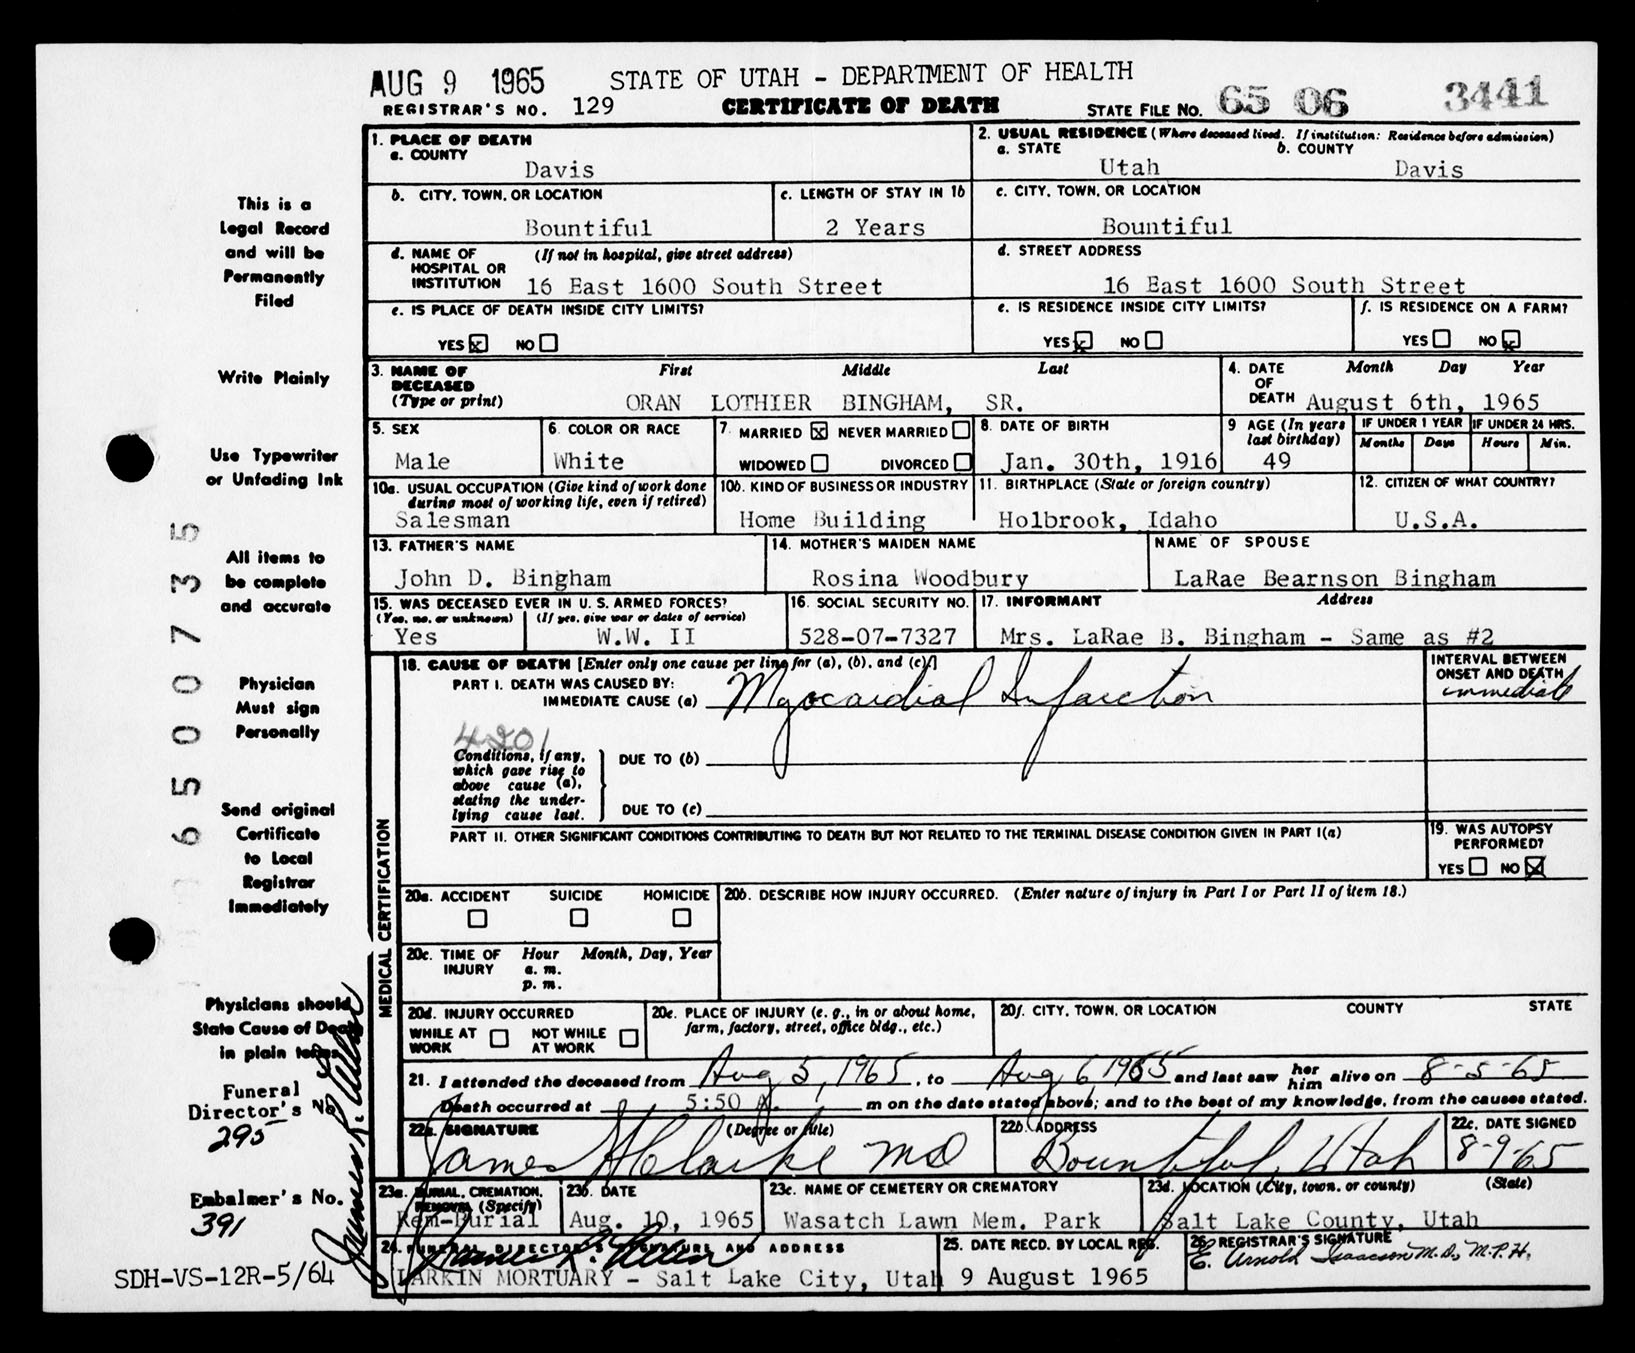 AUG 9 1965 STATE OF UTAH - DEPARTMENT OF HEALTH
REGISTRAR'S NO. 129 CERTIFICATE OF DEATH STATE FILE NO. 65 06 3441
1. PLACE OF DEATH
a. COUNTY
Davis
2. USUAL RESIDENCE (Where deceased lived. If institution: Residence before admission)
a. STATE b. COUNTY
Utah Davis
b. CITY, TOWN, OR LOCATION
Bountiful
c. LENGTH OF STAY IN 1b
2 Years
c. CITY, TOWN, OR LOCATION
Bountiful
d. NAME OF (If not in hospital, give street address)
HOSPITAL OR
INSTITUTION 16 East 1600 South Street
d. STREET ADDRESS
16 East 1600 South Street
e. IS PLACE OF DEATH INSIDE CITY LIMITS?
YES x NO
e. IS RESIDENCE INSIDE CITY LIMITS?
YES x NO
f. IS RESIDENCE ON A FARM?
YES NO x
3. NAME OF First Middle Last
DECEASED
(Type or print) ORAN LOTHIER BINGHAM, SR.
4. DATE Month Day Year
OF
DEATH August 6th, 1965
5. SEX
Male
6. COLOR OR RACE
White
7. MARRIED x NEVER MARRIED
WIDOWED DIVORCED
8. DATE OF BIRTH
Jan. 30th, 1916
9 AGE (In years
last birthday)
49
IF UNDER 1 YEAR
Months Days
IF UNDER 24 HRS.
Hours Min.
10a. USUAL OCCUPATION (Give kind of work done
during most of working life, even if retired)
Salesman
10b. KIND OF BUSINESS OR INDUSTRY
Home Building
11. BIRTHPLACE (State or foreign country)
Holbrook, Idaho
12. CITIZEN OF WHAT COUNTRY?
U.S.A.
13. FATHER'S NAME
John D. Bingham
14. MOTHER'S MAIDEN NAME
Rosina Woodbury
NAME OF SPOUSE
LaRae Bearnson Bingham
15. WAS DECEASED EVER IN U. S. ARMED FORCES?
(Yes, no, or unknown) (If yes, give war or dates of service)
Yes W.W. II
16. SOCIAL SECURITY NO.
528-07-7327
17. INFORMANT Address
Mrs. LaRae B. Bingham - Same as #2
MEDICAL CERTIFICATION
18. CAUSE OF DEATH [Enter only one cause per line for (a), (b), and (c).]
PART I. DEATH WAS CAUSED BY:
IMMEDIATE CAUSE (a) Myocardial Infarction
INTERVAL BETWEEN
ONSET AND DEATH
immediate
4201
Conditions, if any,
which gave rise to
above cause (a),
stating the under-
lying cause last.
DUE TO (b)
DUE TO (c)
PART II. OTHER SIGNIFICANT CONDITIONS CONTRIBUTING TO DEATH BUT NOT RELATED TO THE TERMINAL DISEASE CONDITION GIVEN IN PART I(a)
19. WAS AUTOPSY
PERFORMED?
YES NO X
20a. ACCIDENT SUICIDE HOMICIDE
20b. DESCRIBE HOW INJURY OCCURRED. (Enter nature of injury in Part I or Part II of item 18.)
20c. TIME OF Hour Month, Day, Year
INJURY a. m.
p. m.
20d. INJURY OCCURRED
WHILE AT NOT WHILE
WORK AT WORK
20e. PLACE OF INJURY (e. g., in or about home,
farm, factory, street, office bldg., etc.)
20f. CITY, TOWN, OR LOCATION COUNTY STATE
21. I attended the deceased from Aug 5, 1965, to Aug 6, 1965 and last saw her him alive on 8-5-65
Death occurred at 5:50 A. m on the date stated above; and to the best of my knowledge, from the causes stated.
22a. SIGNATURE (Degree or title)
James H Clarke MD
22b. ADDRESS
Bountiful, Utah
22c. DATE SIGNED
8-9-65
23a. BURIAL, CREMATION,
REMOVAL (Specify)
Rem-Burial
23b. DATE
Aug. 10, 1965
23c. NAME OF CEMETERY OR CREMATORY
Wasatch Lawn Mem. Park
23d. LOCATION (City, town, or county) (State)
Salt Lake County, Utah
24. FUNERAL DIRECTOR'S SIGNATURE AND ADDRESS
LARKIN MORTUARY - Salt Lake City, Utah
25. DATE RECD. BY LOCAL REG.
9 August 1965
26. REGISTRAR'S SIGNATURE
E. Arnold Isaacson M.D., M.P.H.
This is a
Legal Record
and will be
Permanently
Filed
Write Plainly
Use Typewriter
or Unfading Ink
All items to
be complete
and accurate
Physician
Must sign
Personally
Send original
Certificate
to Local
Registrar
Immediately
Physicians should
State Cause of Death
in plain terms
Funeral
Director's No.
295
Embalmer's No.
391
SDH-VS-12R-5/64
6 5 0 0 7 3 5